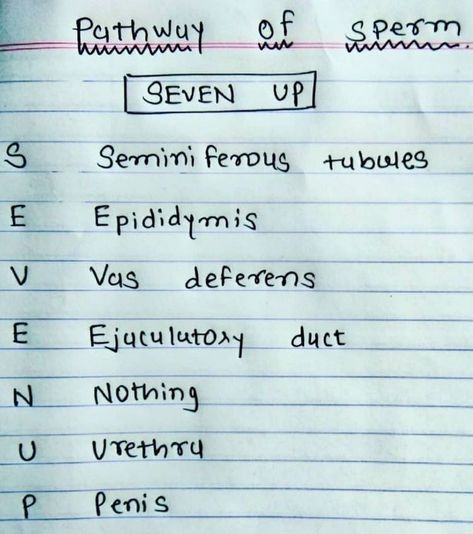 Pathway of sperm.
SEVEN UP
S Seminiferous tubules
E Epididymis
V Vas deferens
E Ejaculatory duct
N Nothing
U Urethra
P Penis